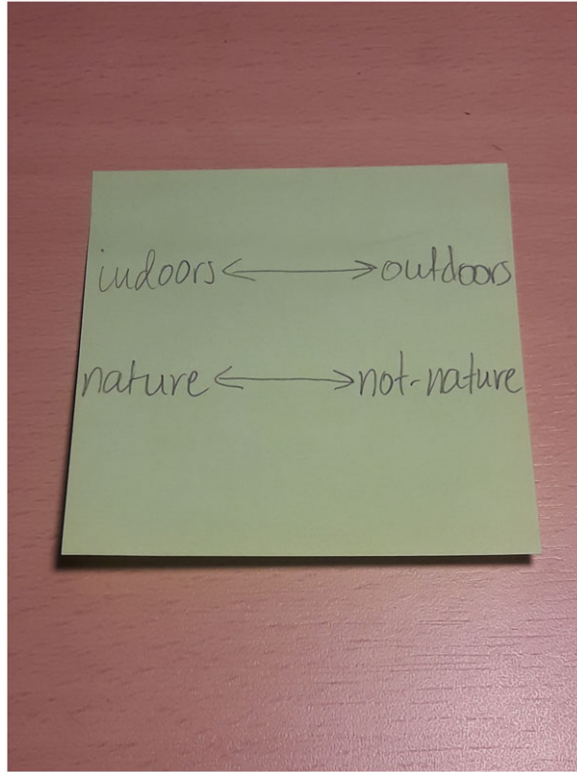 indoors <-> outdoors
nature <-> not-nature